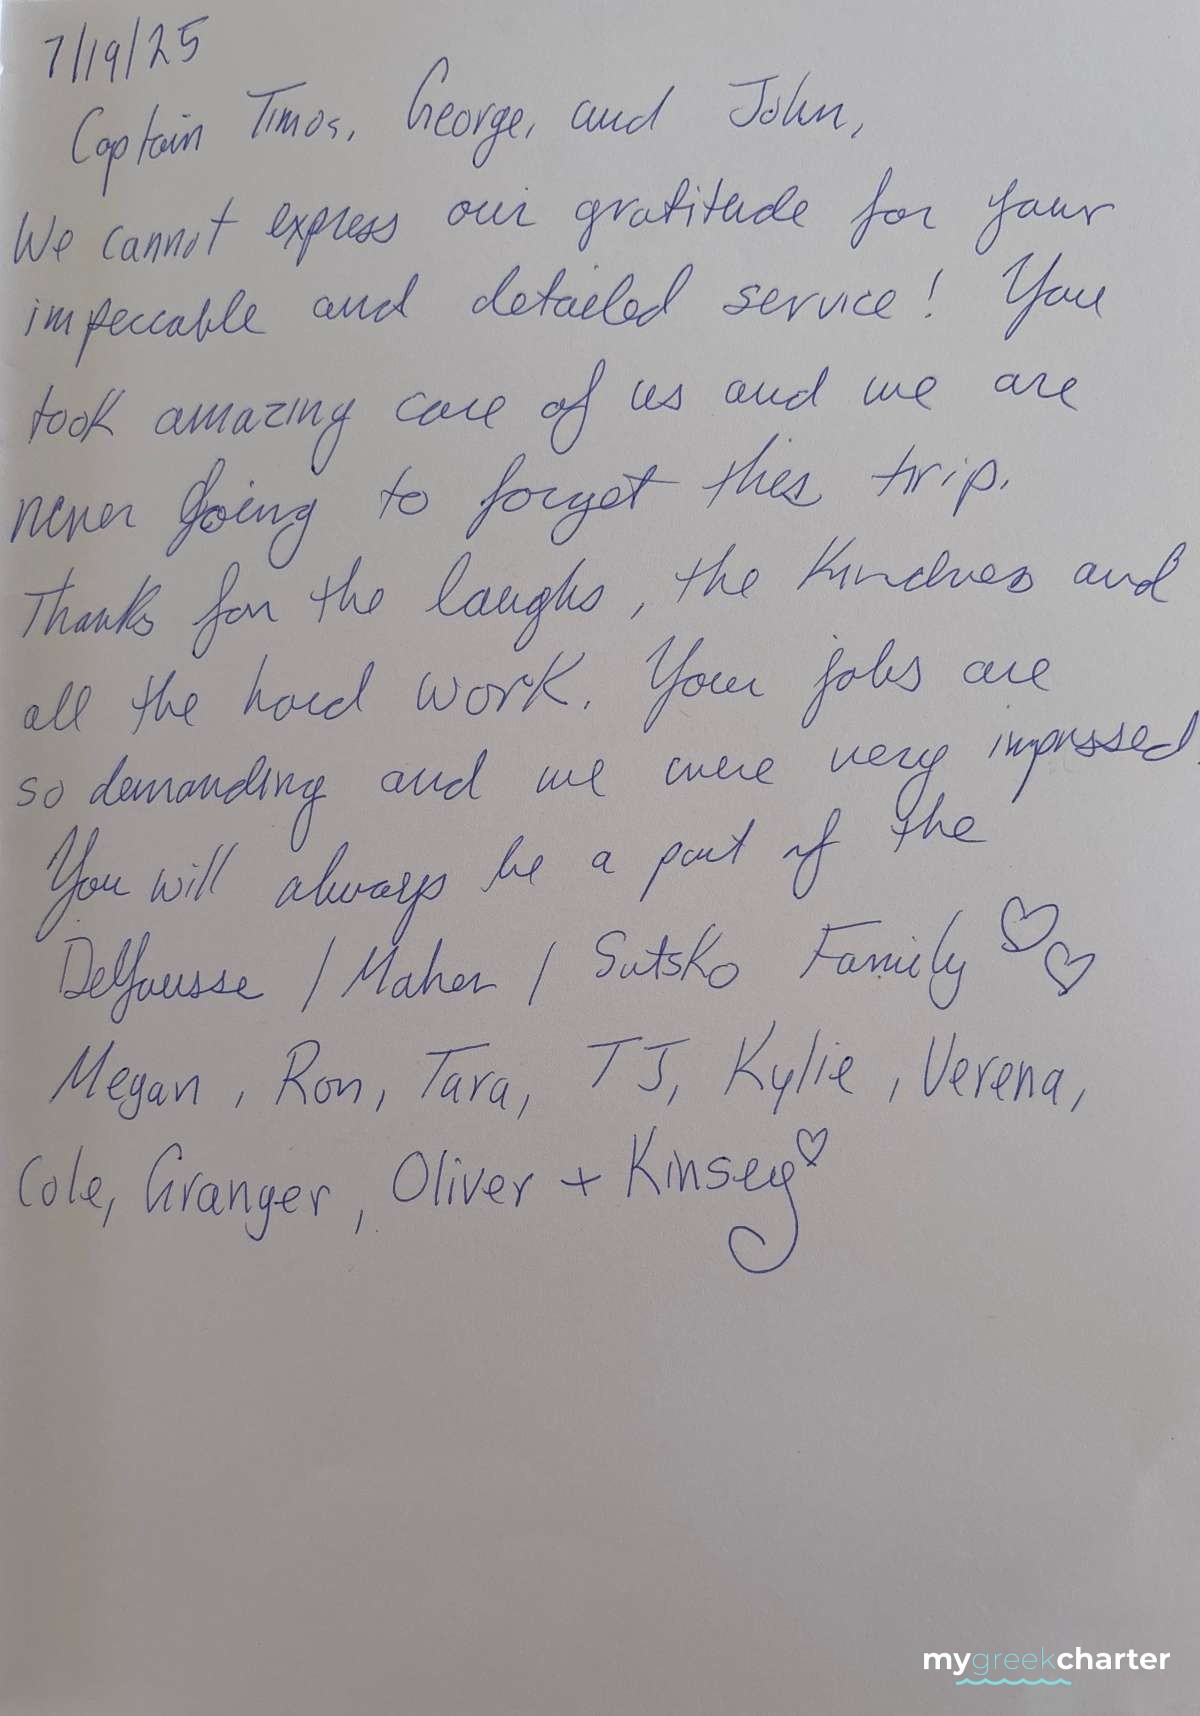 7/19/25
Captain Timos, George, and John,
We cannot express our gratitude for your
impeccable and detailed service! You
took amazing care of us and we are
never going to forget this trip.
Thanks for the laughs, the kindness and
all the hard work. Your jobs are
so demanding and we were very impressed.
You will always be a part of the
DelYousse / Maher / Sutsko Family ♡♡
Megan, Ron, Tara, TJ, Kylie, Verena,
Cole, Granger, Oliver + Kinsey♡
mygreekcharter